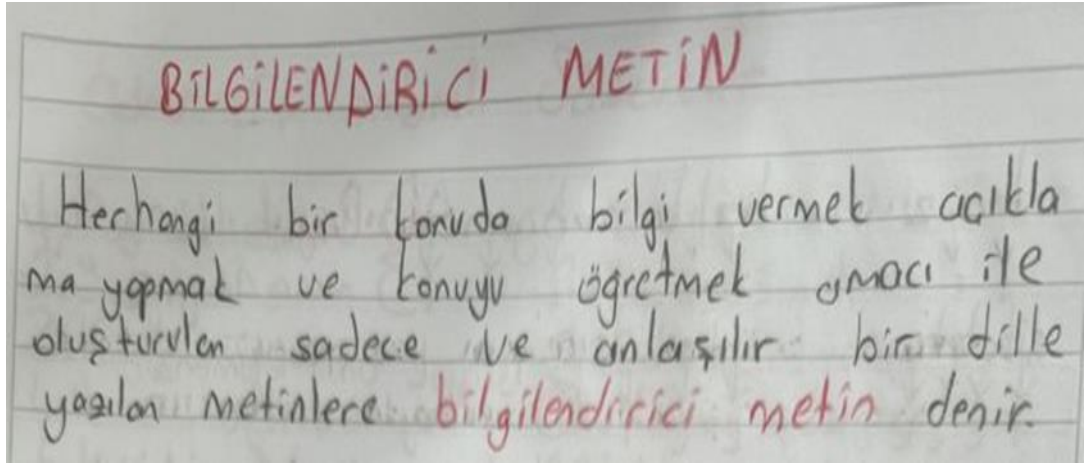 BİLGİLENDİRİCİ METİN
Herhangi bir konuda bilgi vermek acıkla
ma yapmak ve konuyu öğretmek amacı ile
oluşturulan sadece ve anlaşılır bir dille
yazılan metinlere bilgilendirici metin denir.